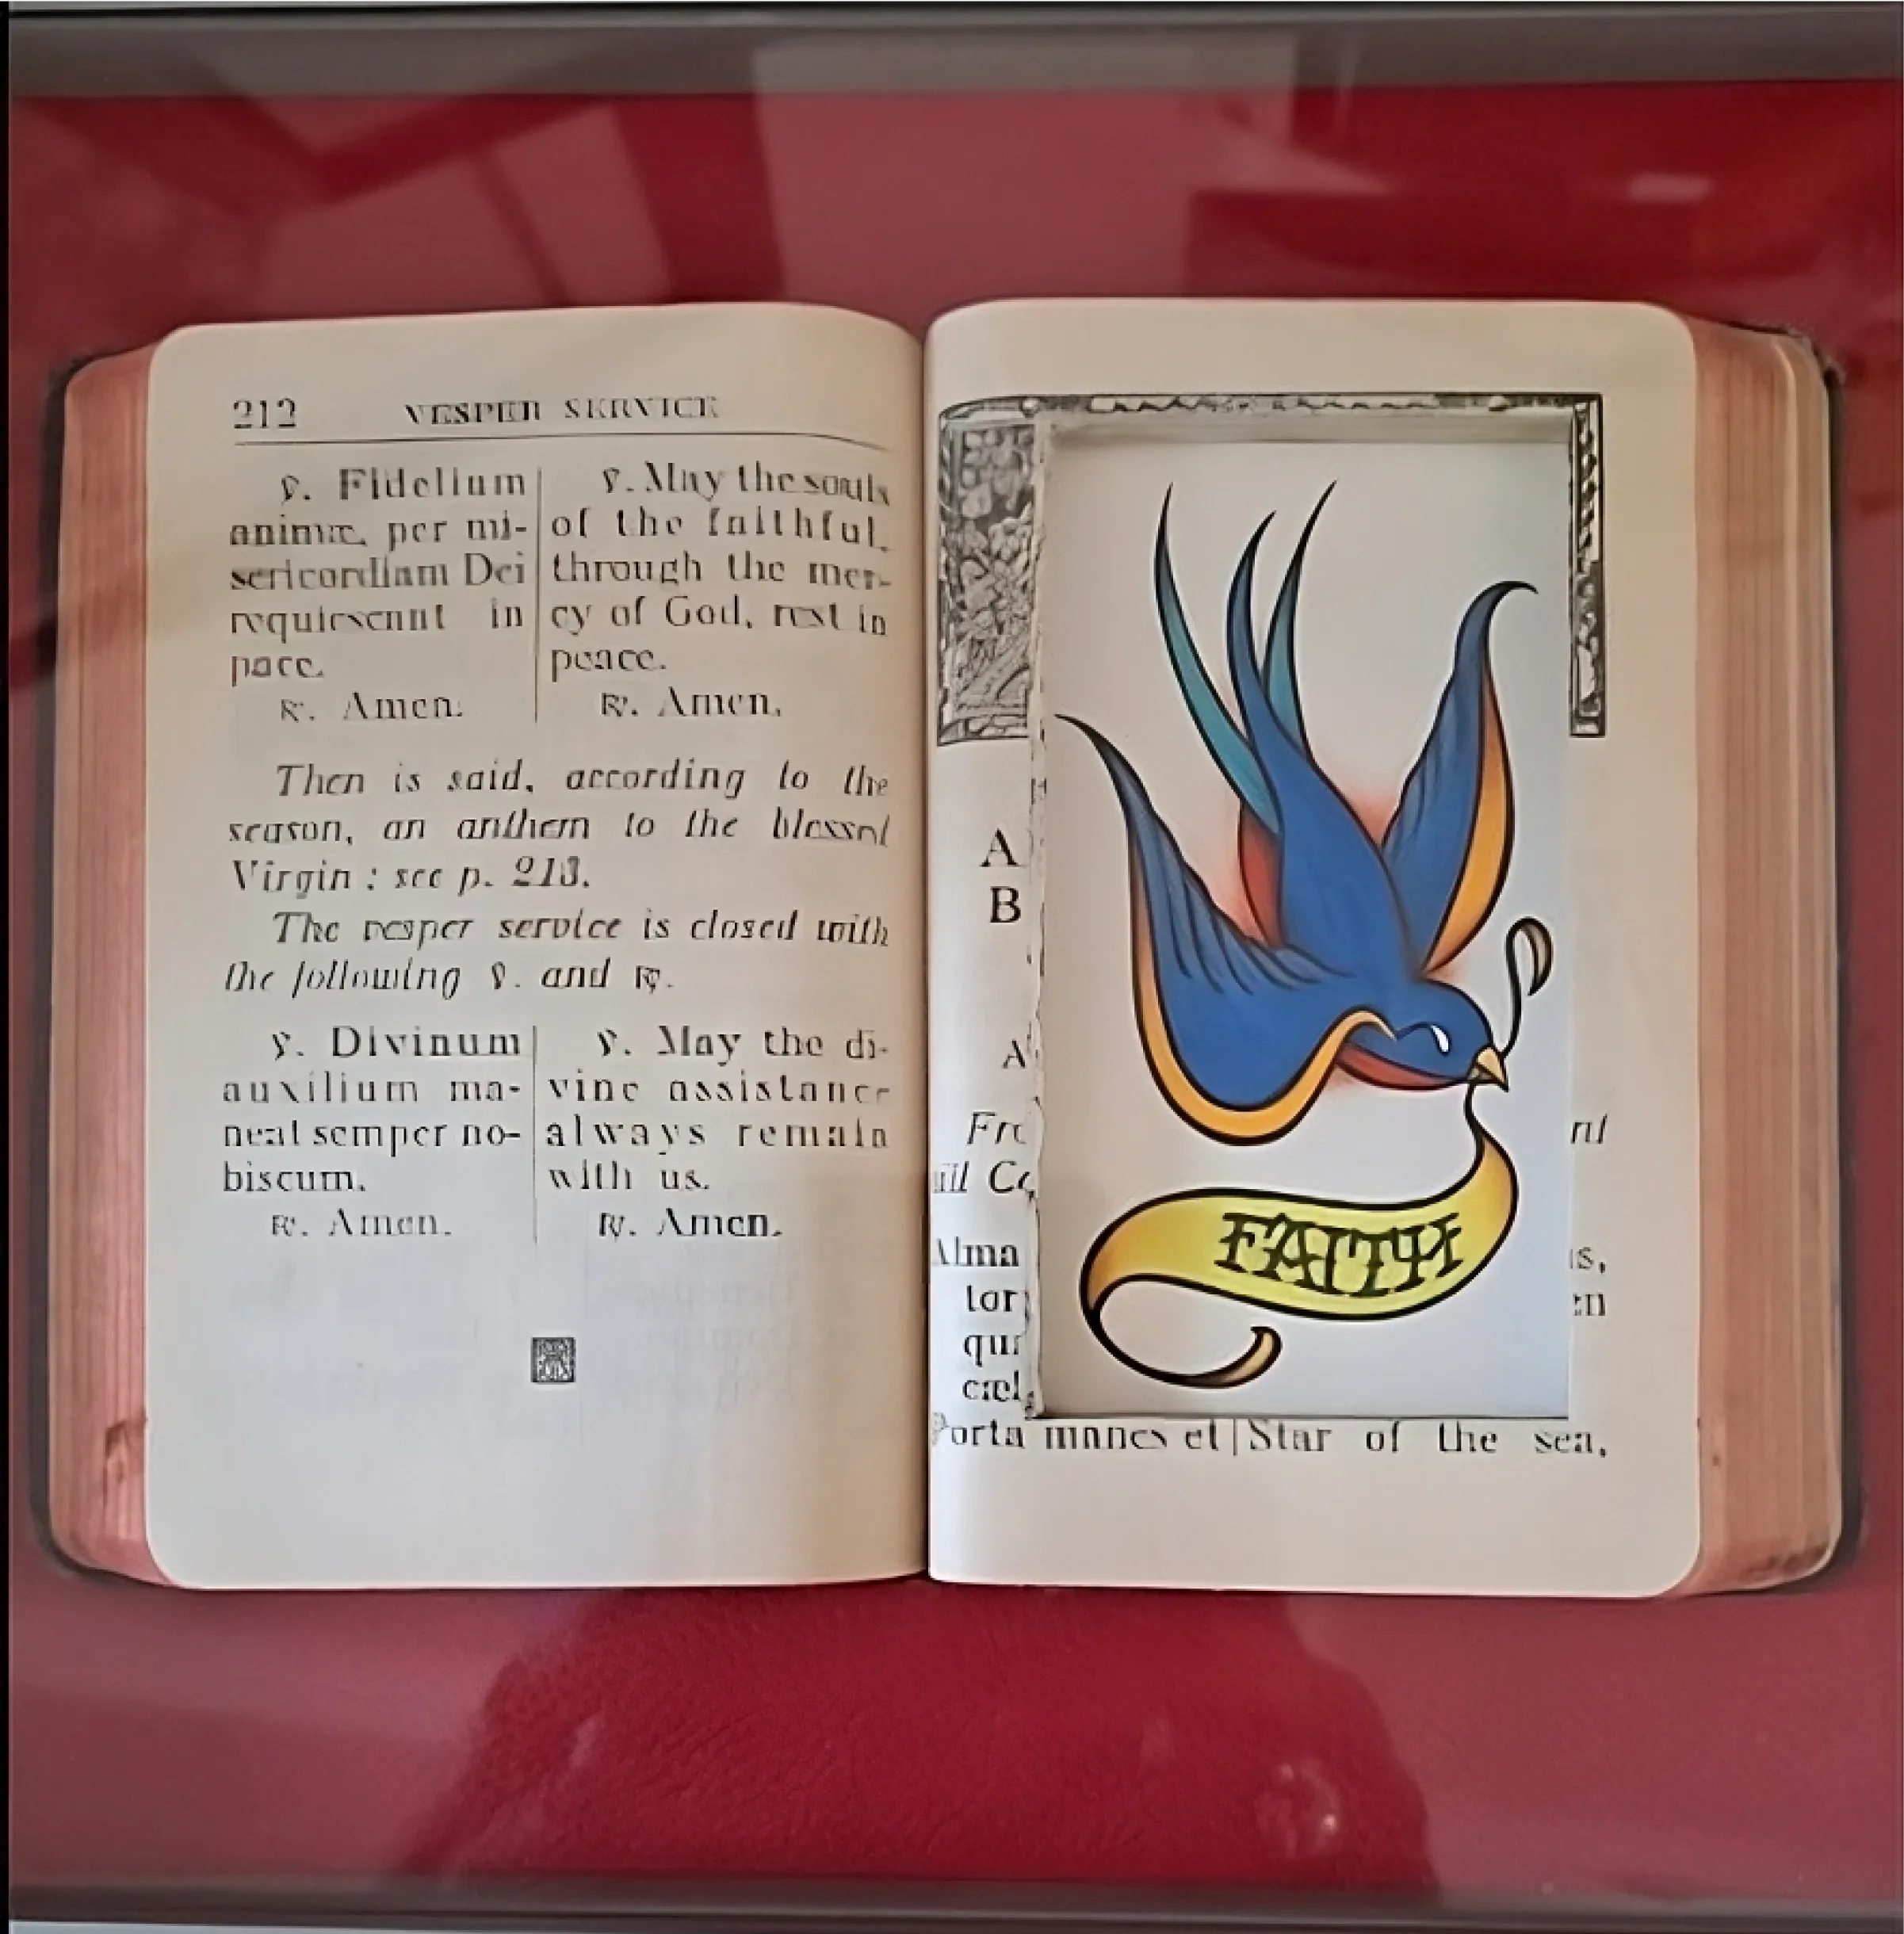 212 VESPER SERVICE
℣. Fidelium
animæ, per mi-
sericordiam Dei
requiescant in
pace.
℟. Amen.
℣. May the souls
of the faithful,
through the mer-
cy of God, rest in
peace.
℟. Amen.
Then is said, according to the
season, an anthem to the blessed
Virgin : see p. 213.
The vesper service is closed with
the following ℣. and ℟.
℣. Divinum
auxilium ma-
neat semper no-
biscum.
℟. Amen.
℣. May the di-
vine assistance
always remain
with us.
℟. Amen.
A
B
A
Fre
Alma
tor
qui
cæl
Porta manes et
Star of the sea,
nt
is,
en
FAITH